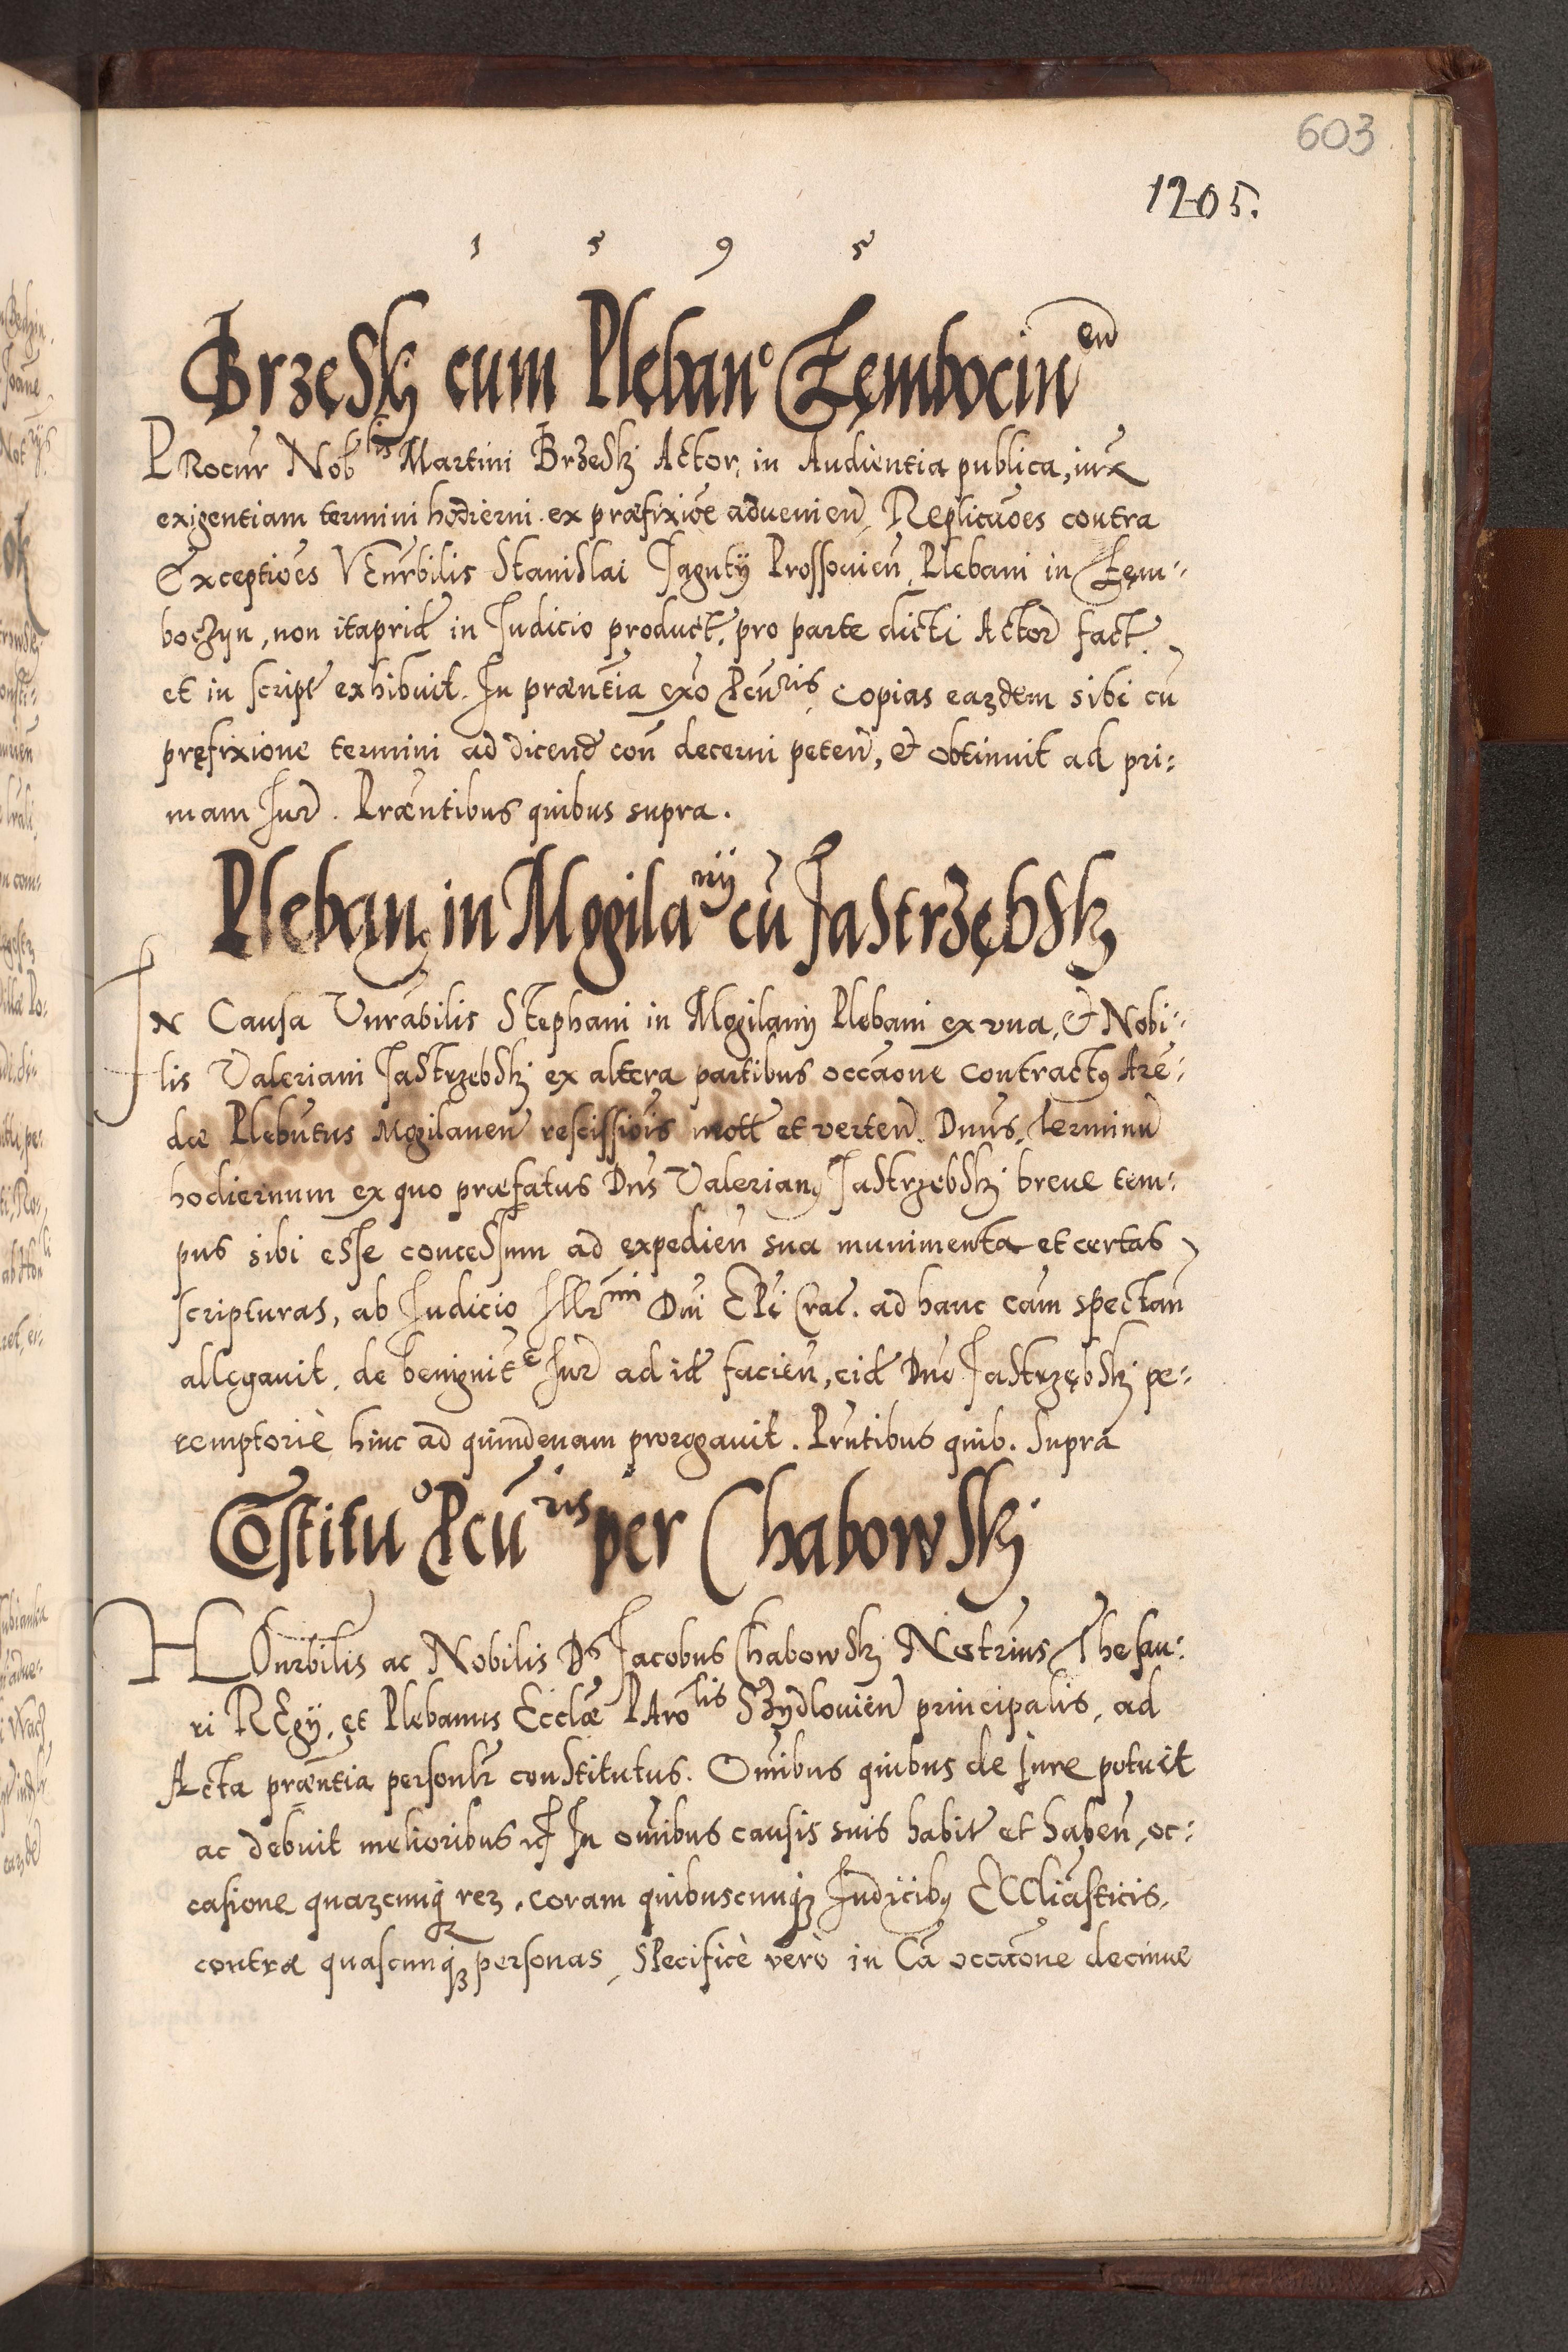 603
1205.
1 5 9 5
Brzęskj cum Plęban° Zęmbocin^en
PRocur Nob^lis Martini Brzeskj Actor, in Audientia publica, iux
exigentiam termini hodierni ex præfixiõe aduenien, Replicãoes contra
Exceptiões VEnrbilis Stanislai Jagntÿ Prossouien, Plebani in Zęm-
boczyn, non itaprid in Judicio product, pro parte dicti Actor fact,
et in script exhibuit. In præntia exo Pcũ^ris, Copias eazdem sibi cũ
pręfixione termini ad dicend con decerni peten, et obtinuit ad pri:
mam Jurd. Præntibus quibus supra.
Pleban9 in Mogila^nÿ cũ Jastrzębskj
IN Causa Vnrabilis Stephani in Mogilanÿ Plebani ex vna, et Nobi:
lis Valeriani Jastrzebskj ex altera partibus occãone contract9 Arẽ:
dæ Plebntus Mogilanen rescissiõis mott et verten. Dnus, terminũ
hodiernum ex quo præfatus Dns Valerian9 Jastrzebskj breue tem:
pus sibi esse concessum ad expedien sua munimenta et certas
scripturas, ab Judicio Illr^mi Dni EPi Crac. ad hanc cãm spectan
allęgauit, de benignit^e Jur ad id facien, eid Dno Jastrzębskj pe:
remptoriè hinc ad quindenam prorogauit. Prntibus quib. supra
Cõstitu° Pcũ^ris per Chabowskj
HOnrbilis ac Nobilis Ds Jacobus Chabowskj Notrius Thesau:
ri REgÿ, et Plebanus Ecclæ PAro^lis Szydlouien principalis, ad
Acta præntia personlr constitutus. Omibus quibus de Jure potuit
ac debuit melioribus et In omibus causis suis habit et haben, oc:
casione quazcunq rez, coram quibuscunqz Judicib9 ECCliasticis,
contra quascunqz personas, SPecificè verò in Cã occãone decimæ